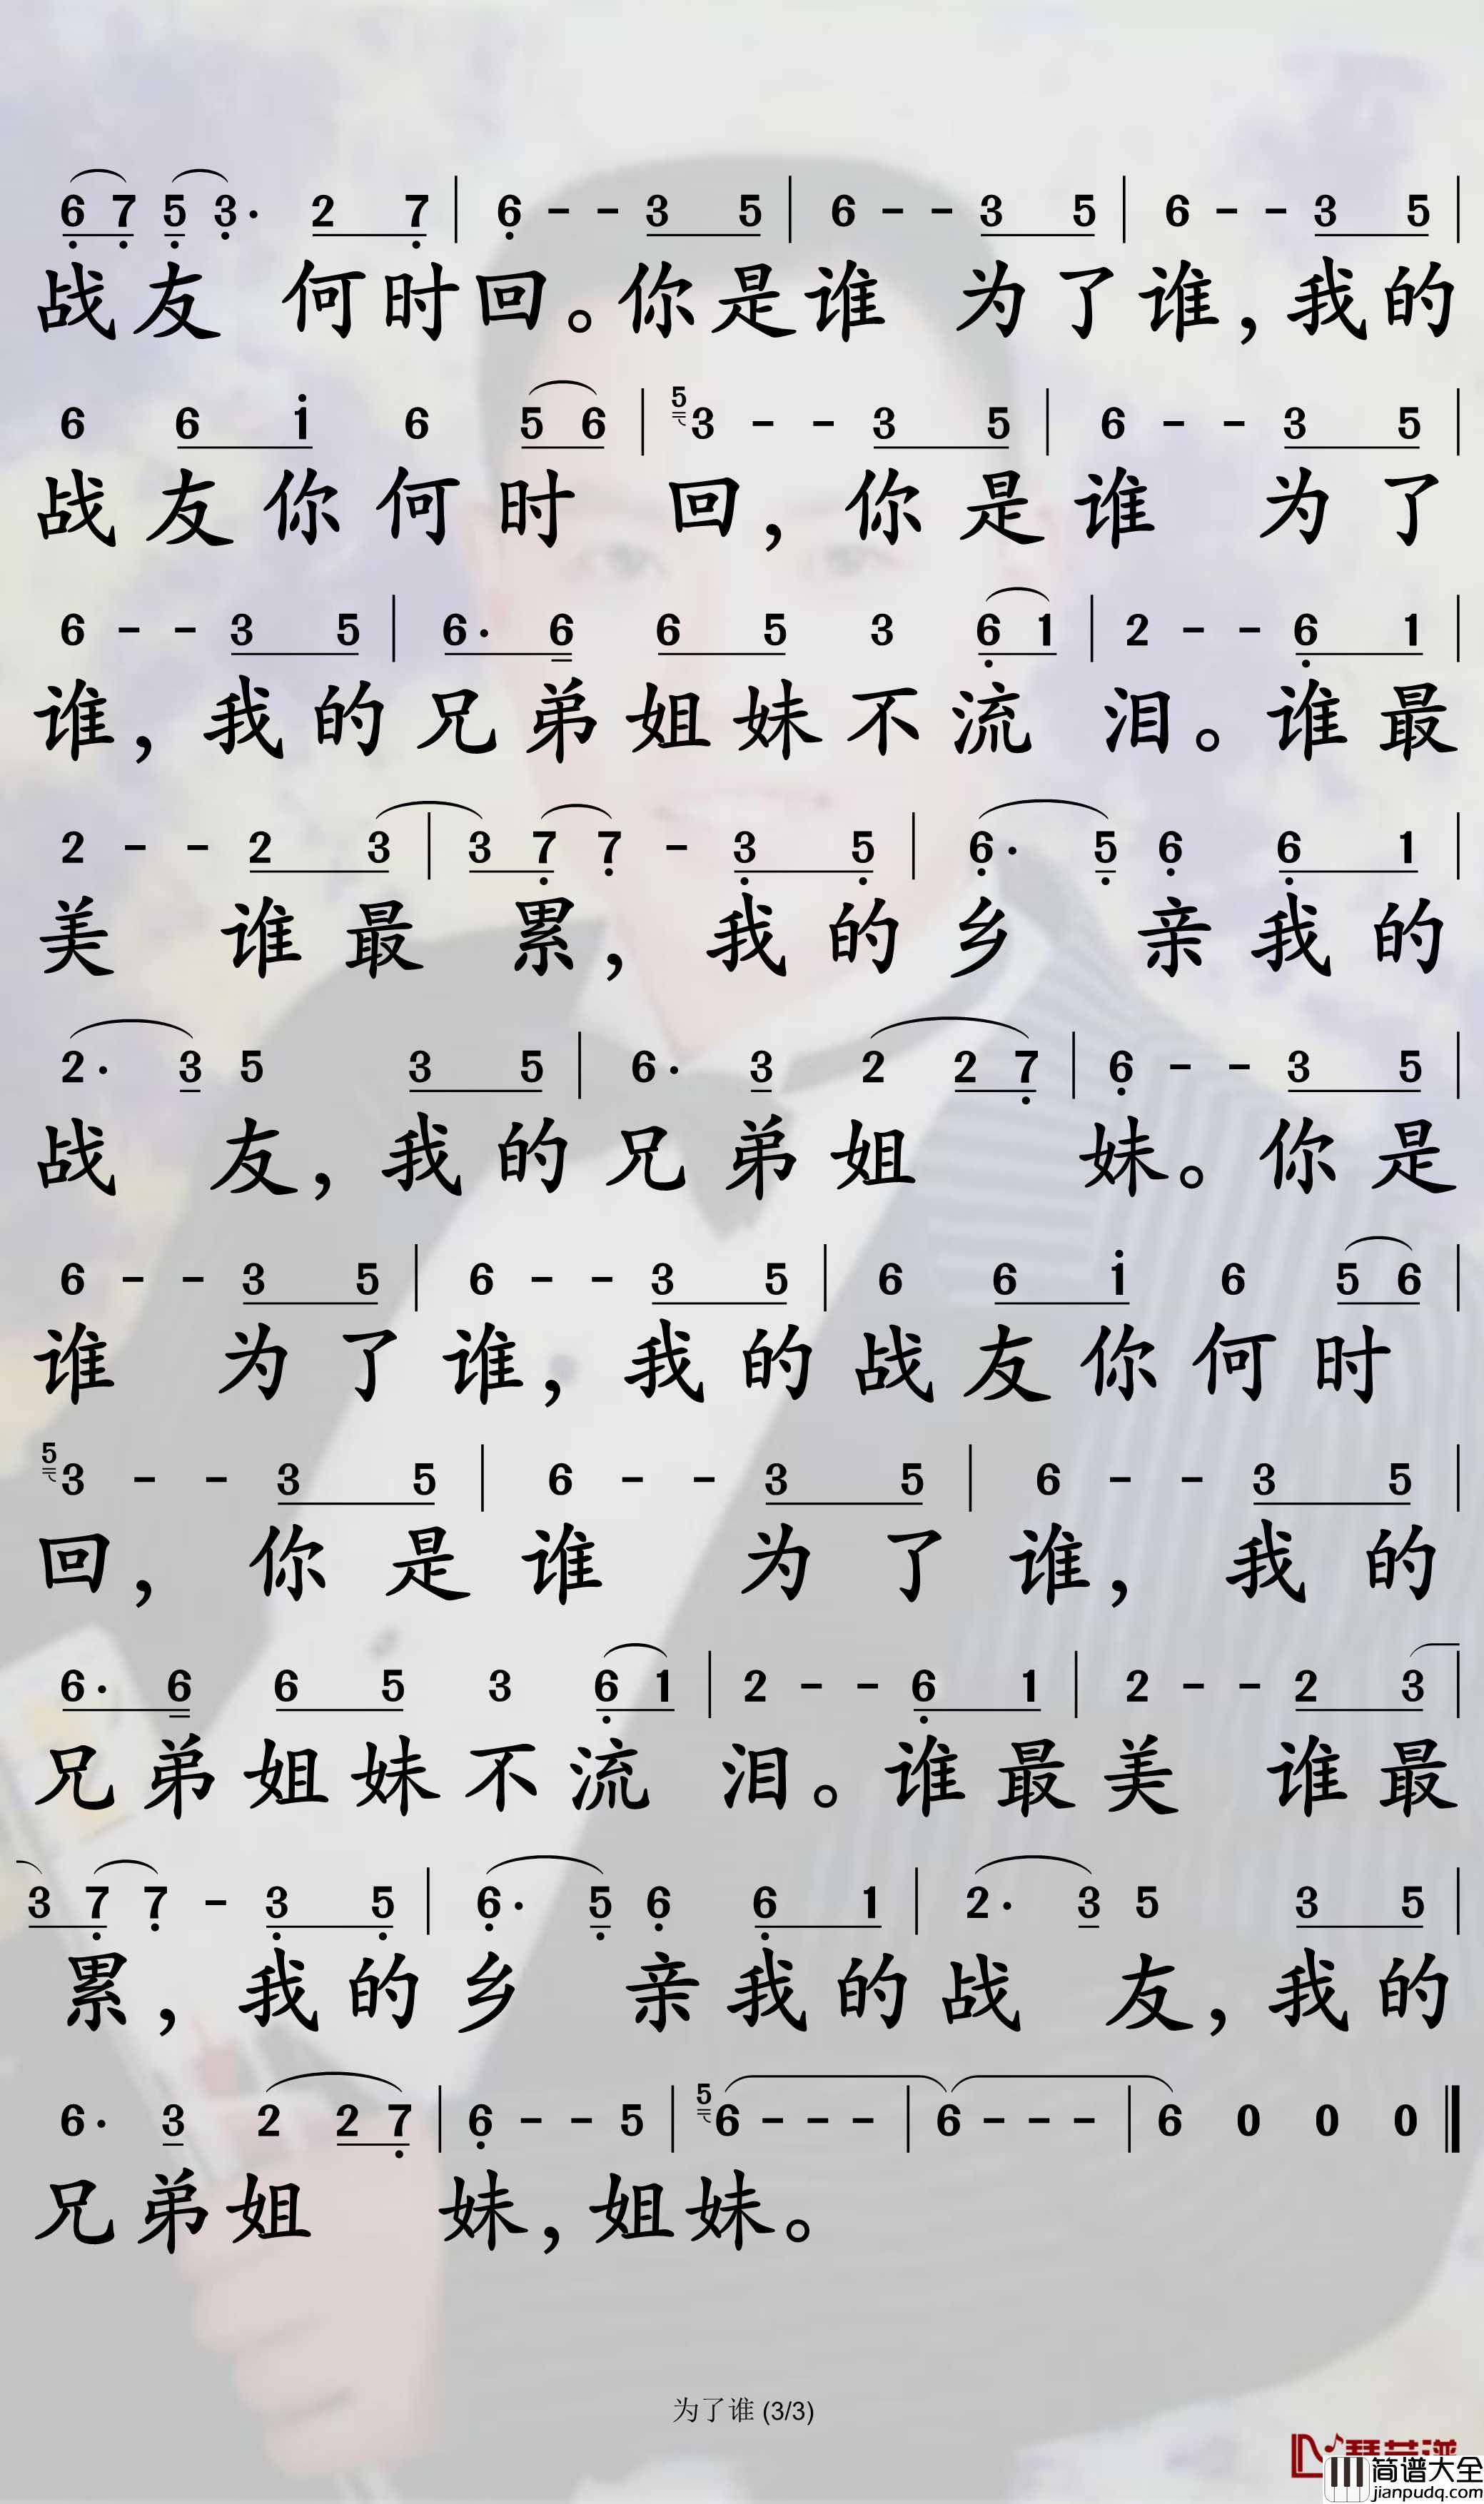 6 7 5 3· 2 7 | 6 - - 3 5 | 6 - - 3 5 | 6 - - 3 5 |
战友 何时回。你是谁 为了谁,我的
6 6 i 6 5 6 | 5 3 - - 3 5 | 6 - - 3 5 |
战友你何时 回,你是谁 为了
6 - - 3 5 | 6· 6 6 5 3 6 1 | 2 - - 6 1 |
谁,我的兄弟姐妹不流 泪。谁最
2 - - 2 3 | 3 7 7 - 3 5 | 6· 5 6 6 1 |
美 谁最 累,我的乡 亲我的
2· 3 5 3 5 | 6· 3 2 2 7 | 6 - - 3 5 |
战 友,我的兄弟姐 妹。你是
6 - - 3 5 | 6 - - 3 5 | 6 6 i 6 5 6 |
谁 为了谁,我的战友你何时
5 3 - - 3 5 | 6 - - 3 5 | 6 - - 3 5 |
回,你是谁 为了谁,我的
6· 6 6 5 3 6 1 | 2 - - 6 1 | 2 - - 2 3 |
兄弟姐妹不流 泪。谁最美 谁最
3 7 7 - 3 5 | 6· 5 6 6 1 | 2· 3 5 3 5 |
累,我的乡 亲我的战 友,我的
6· 3 2 2 7 | 6 - - 5 | 5 6 - - - | 6 - - - | 6 0 0 0 ‖
兄弟姐 妹,姐妹。
为了谁 (3/3)
简谱大全
jianpudq.com